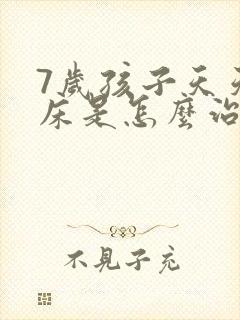 7歲孩子天天
床是怎麼治
不見子充